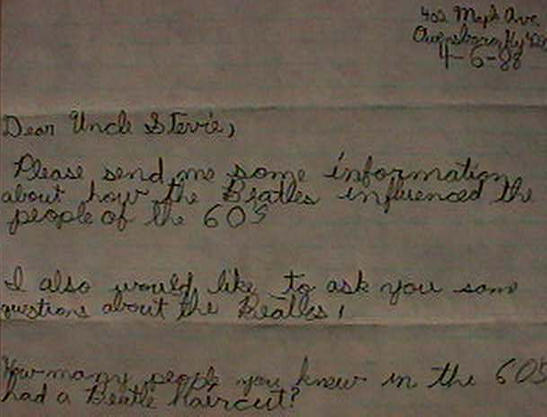 402 Ave
Owensboro, Ky
4-6-88
Dear Uncle Stevie,
Please send me some information
about how the Beatles influenced the
people of the 60S
I also would like to ask you some
questions about the Beatles!
How many people you knew in the 60S
had a Beatle Haircut?